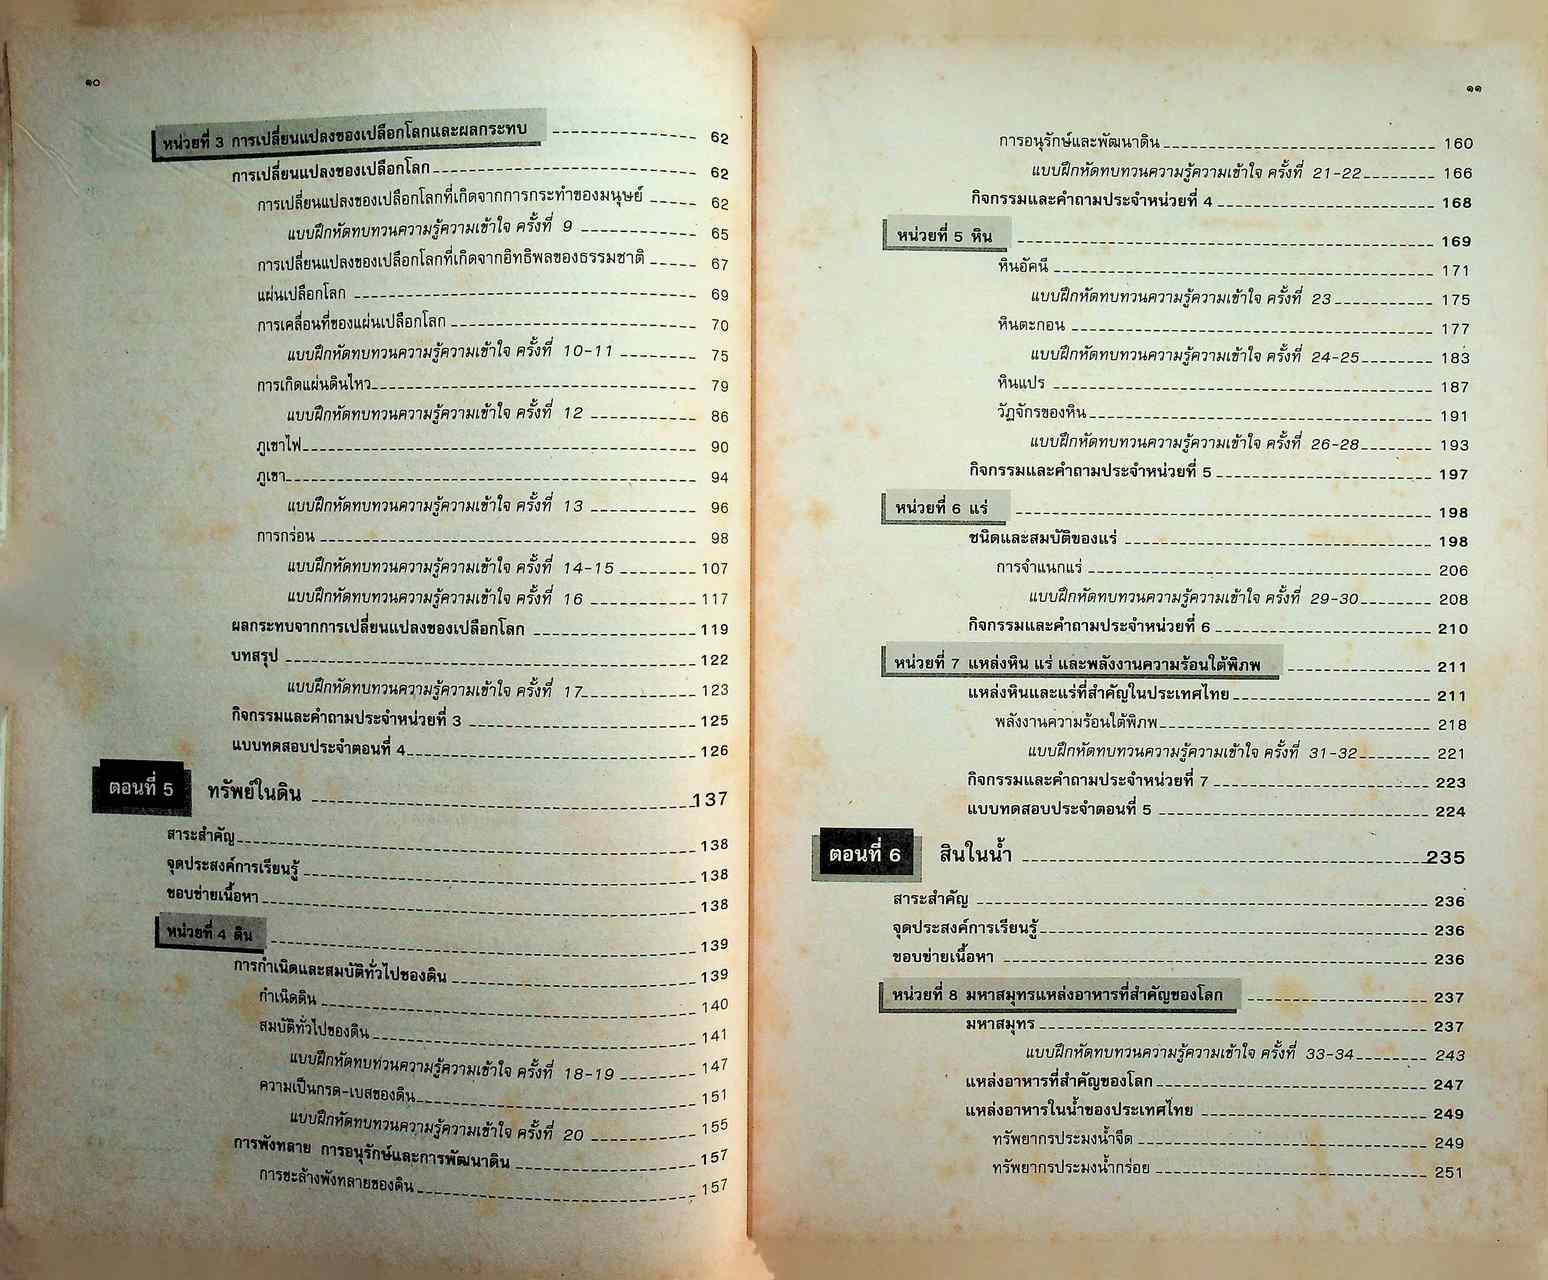 ๑๐
หน่วยที่ 3 การเปลี่ยนแปลงของเปลือกโลกและผลกระทบ 62
การเปลี่ยนแปลงของเปลือกโลก 62
การเปลี่ยนแปลงของเปลือกโลกที่เกิดจากการกระทำของมนุษย์ 62
แบบฝึกหัดทบทวนความรู้ความเข้าใจ ครั้งที่ 9 65
การเปลี่ยนแปลงของเปลือกโลกที่เกิดจากอิทธิพลของธรรมชาติ 67
แผ่นเปลือกโลก 69
การเคลื่อนที่ของแผ่นเปลือกโลก 70
แบบฝึกหัดทบทวนความรู้ความเข้าใจ ครั้งที่ 10-11 75
การเกิดแผ่นดินไหว 79
แบบฝึกหัดทบทวนความรู้ความเข้าใจ ครั้งที่ 12 86
ภูเขาไฟ 90
ภูเขา 94
แบบฝึกหัดทบทวนความรู้ความเข้าใจ ครั้งที่ 13 96
การกร่อน 98
แบบฝึกหัดทบทวนความรู้ความเข้าใจ ครั้งที่ 14-15 107
แบบฝึกหัดทบทวนความรู้ความเข้าใจ ครั้งที่ 16 117
ผลกระทบจากการเปลี่ยนแปลงของเปลือกโลก 119
บทสรุป 122
แบบฝึกหัดทบทวนความรู้ความเข้าใจ ครั้งที่ 17 123
กิจกรรมและคำถามประจำหน่วยที่ 3 125
แบบทดสอบประจำตอนที่ 4 126
ตอนที่ 5 ทรัพย์ในดิน 137
สาระสำคัญ 138
จุดประสงค์การเรียนรู้ 138
ขอบข่ายเนื้อหา 138
หน่วยที่ 4 ดิน 139
การกำเนิดและสมบัติทั่วไปของดิน 139
กำเนิดดิน 140
สมบัติทั่วไปของดิน 141
แบบฝึกหัดทบทวนความรู้ความเข้าใจ ครั้งที่ 18-19 147
ความเป็นกรด-เบสของดิน 151
แบบฝึกหัดทบทวนความรู้ความเข้าใจ ครั้งที่ 20 155
การพังทลาย การอนุรักษ์และการพัฒนาดิน 157
การชะล้างพังทลายของดิน 157
๑๑
การอนุรักษ์และพัฒนาดิน 160
แบบฝึกหัดทบทวนความรู้ความเข้าใจ ครั้งที่ 21-22 166
กิจกรรมและคำถามประจำหน่วยที่ 4 168
หน่วยที่ 5 หิน 169
หินอัคนี 171
แบบฝึกหัดทบทวนความรู้ความเข้าใจ ครั้งที่ 23 175
หินตะกอน 177
แบบฝึกหัดทบทวนความรู้ความเข้าใจ ครั้งที่ 24-25 183
หินแปร 187
วัฏจักรของหิน 191
แบบฝึกหัดทบทวนความรู้ความเข้าใจ ครั้งที่ 26-28 193
กิจกรรมและคำถามประจำหน่วยที่ 5 197
หน่วยที่ 6 แร่ 198
ชนิดและสมบัติของแร่ 198
การจำแนกแร่ 206
แบบฝึกหัดทบทวนความรู้ความเข้าใจ ครั้งที่ 29-30 208
กิจกรรมและคำถามประจำหน่วยที่ 6 210
หน่วยที่ 7 แหล่งหิน แร่ และพลังงานความร้อนใต้พิภพ 211
แหล่งหินและแร่ที่สำคัญในประเทศไทย 211
พลังงานความร้อนใต้พิภพ 218
แบบฝึกหัดทบทวนความรู้ความเข้าใจ ครั้งที่ 31-32 221
กิจกรรมและคำถามประจำหน่วยที่ 7 223
แบบทดสอบประจำตอนที่ 5 224
ตอนที่ 6 สินในน้ำ 235
สาระสำคัญ 236
จุดประสงค์การเรียนรู้ 236
ขอบข่ายเนื้อหา 236
หน่วยที่ 8 มหาสมุทรแหล่งอาหารที่สำคัญของโลก 237
มหาสมุทร 237
แบบฝึกหัดทบทวนความรู้ความเข้าใจ ครั้งที่ 33-34 243
แหล่งอาหารที่สำคัญของโลก 247
แหล่งอาหารในน้ำของประเทศไทย 249
ทรัพยากรประมงน้ำจืด 249
ทรัพยากรประมงน้ำกร่อย 251